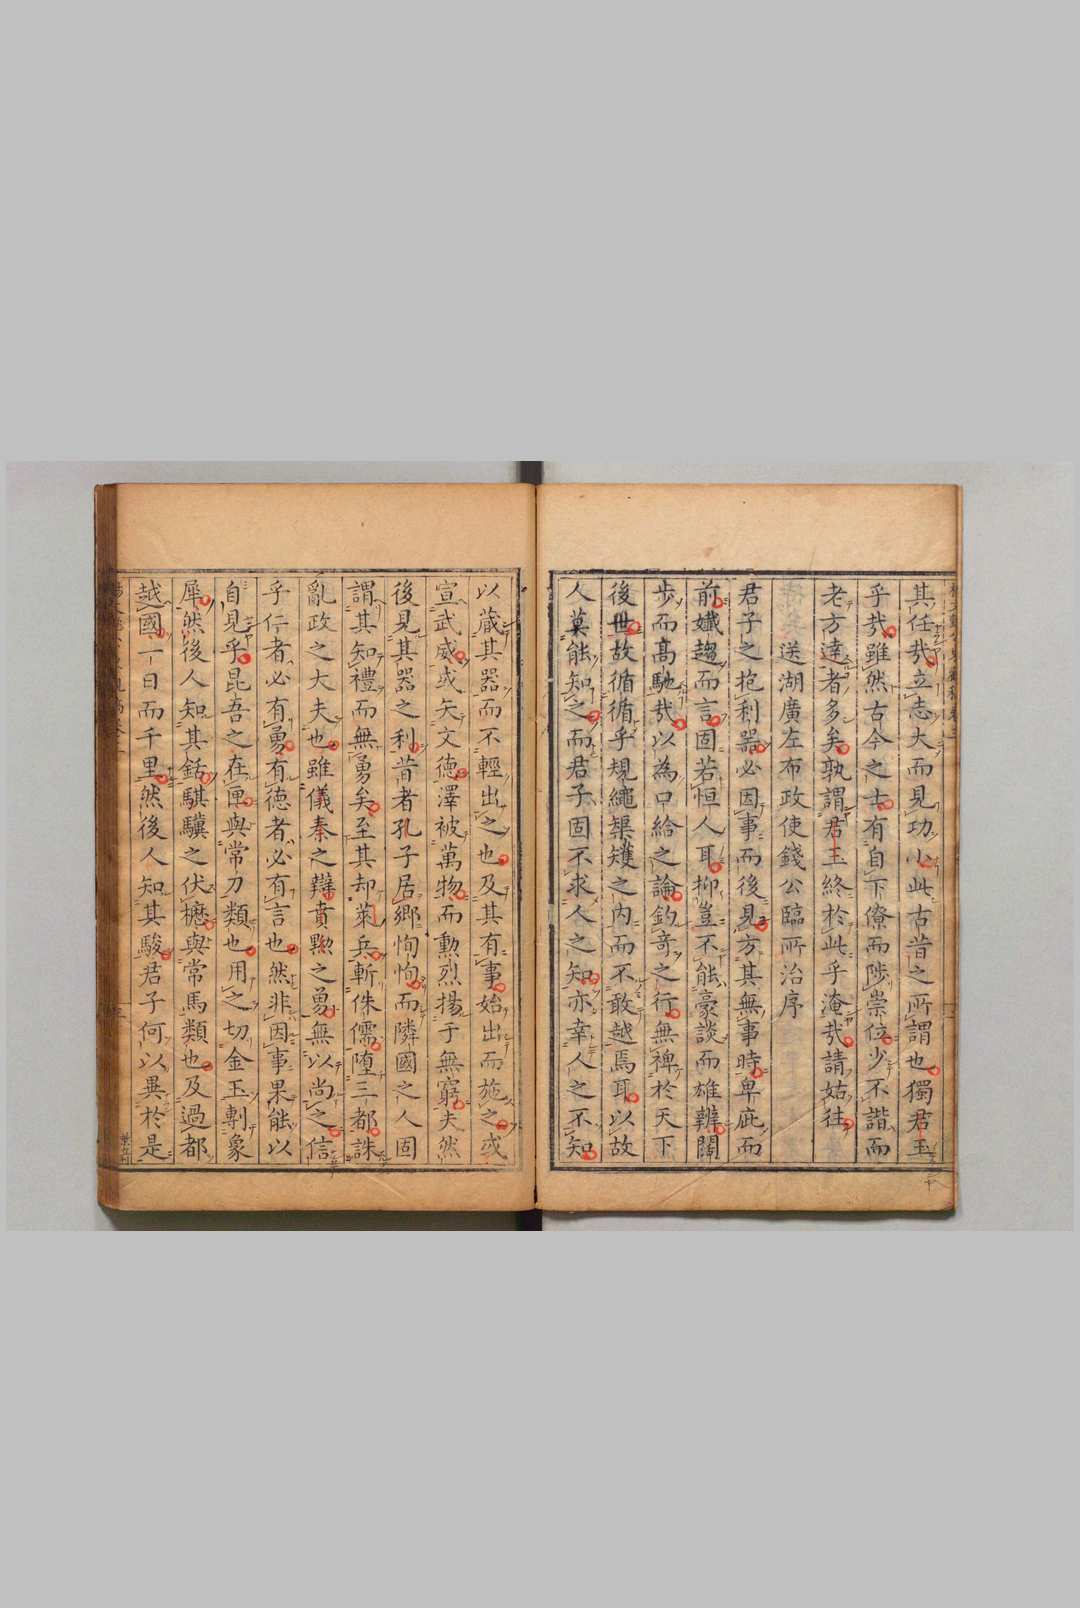 其任哉立志大而見功小此古昔之所謂也獨君玉
乎哉雖然古今之士有自下僚而陟崇位少不諧而
老方達者多矣孰謂君玉終於此乎淹哉請姑往
送湖廣左布政使錢公臨所治序
君子之抱利器必因事而後見方其無事時卑疵而
前孅趨而言固若恒人耳抑豈不能豪談而雄辨闊
步而高馳哉以為口給之論釣奇之行無裨於天下
後世故循循乎規繩榘矱之內而不敢越焉耳以故
人莫能知之而君子固不求人之知亦幸人之不知
以蔵其器而不輕出之也及其有事始出而施之或
宣武威或矢文德澤被萬物而勲烈揚于無窮夫然
後見其器之利昔者孔子居鄉恂恂而隣國之人固
謂其知禮而無勇矣至其却萊兵斬侏儒墮三都誅
亂政之大夫也雖儀秦之辯賁黝之勇無以尚之信
乎仁者必有勇有德者必有言也然非因事果能以
自見乎昆吾之在匣與常刀類也用之切金玉剸象
犀然後人知其銛騏驥之伏櫪與常馬類也及過都
越國一日而千里然後人知其駿君子何以異於是